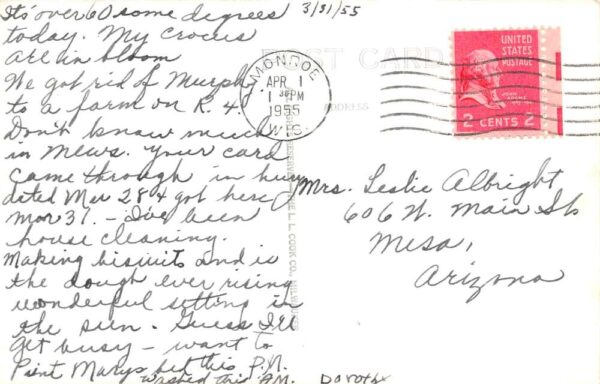 3/31/55
It's over 60 some degrees
today. My crocus
are in bloom
We got rid of Murphy
to a farm on R. 4.
Don't know much
in news. Your card
came through in hurry
dated Mar 28 & got here
Mar 31. – I've been
house cleaning.
Making biscuits and is
the dough ever rising
wonderful setting in
the sun. Guess I'll
get busy – want to
Paint Marys bed this P.M.
washed this A.M. Dorothy
POST CARD
ADDRESS
MONROE
APR 1
1 PM
1955
WIS.
UNITED
STATES
POSTAGE
JOHN
ADAMS
2 CENTS 2
Mrs. Leslie Albright
606 W. Main St.
Mesa,
Arizona
THE L. L. COOK CO., MILWAUKEE